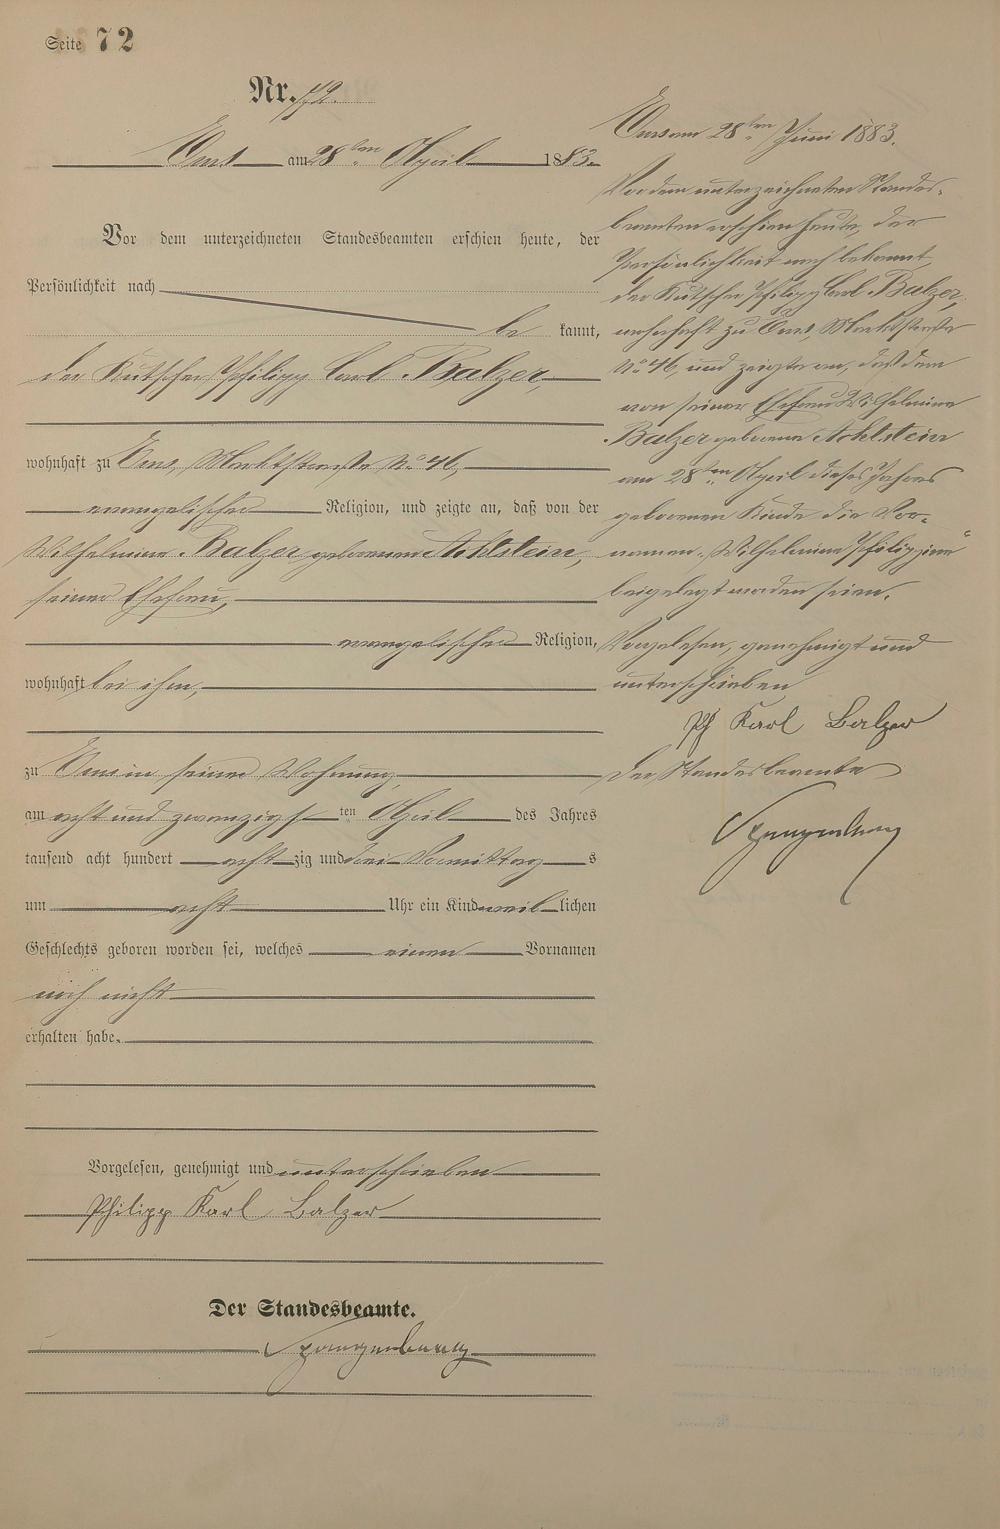 Seite 72
Nr. 72.
Ems am 28ten April 1883.
Vor dem unterzeichneten Standesbeamten erschien heute, der
Persönlichkeit nach
be kannt,
der Kutscher Philipp Carl Balzer,
wohnhaft zu Ems, Marktstraße No. 46,
evangelischer Religion, und zeigte an, daß von der
Wilhelmine Balzer geborenen Achtstein,
seiner Ehefrau,
evangelischer Religion,
wohnhaft bei ihm,
zu Ems in seiner Wohnung,
am acht und zwanzigs ten April des Jahres
tausend acht hundert acht zig und drei Vormittag s
um acht Uhr ein Kind weib lichen
Geschlechts geboren worden sei, welches einen Vornamen
noch nicht
erhalten habe.
Vorgelesen, genehmigt und unterschrieben
Philipp Karl Balzer
Der Standesbeamte.
Spangenberg
Ems am 28ten Juni 1883.
Vor dem unterzeichneten Standes-
beamten erschien heute, der
Persönlichkeit nach bekannt,
der Kutscher Philipp Carl Balzer,
wohnhaft zu Ems, Marktstraße
No. 46, und zeigte an, daß dem
von seiner Ehefrau Wilhelmine
Balzer geborene Achtstein
am 28ten April dieses Jahres
geborenen Kinde die Vor-
namen „Wilhelmine Philippine“
beigelegt worden seien.
Vorgelesen, genehmigt und
unterschrieben
Ph Karl Balzer
Der Standesbeamte
Spangenberg